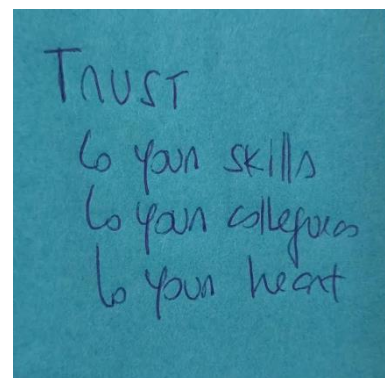 TRUST
↳ your skills
↳ your collegues
↳ your heart